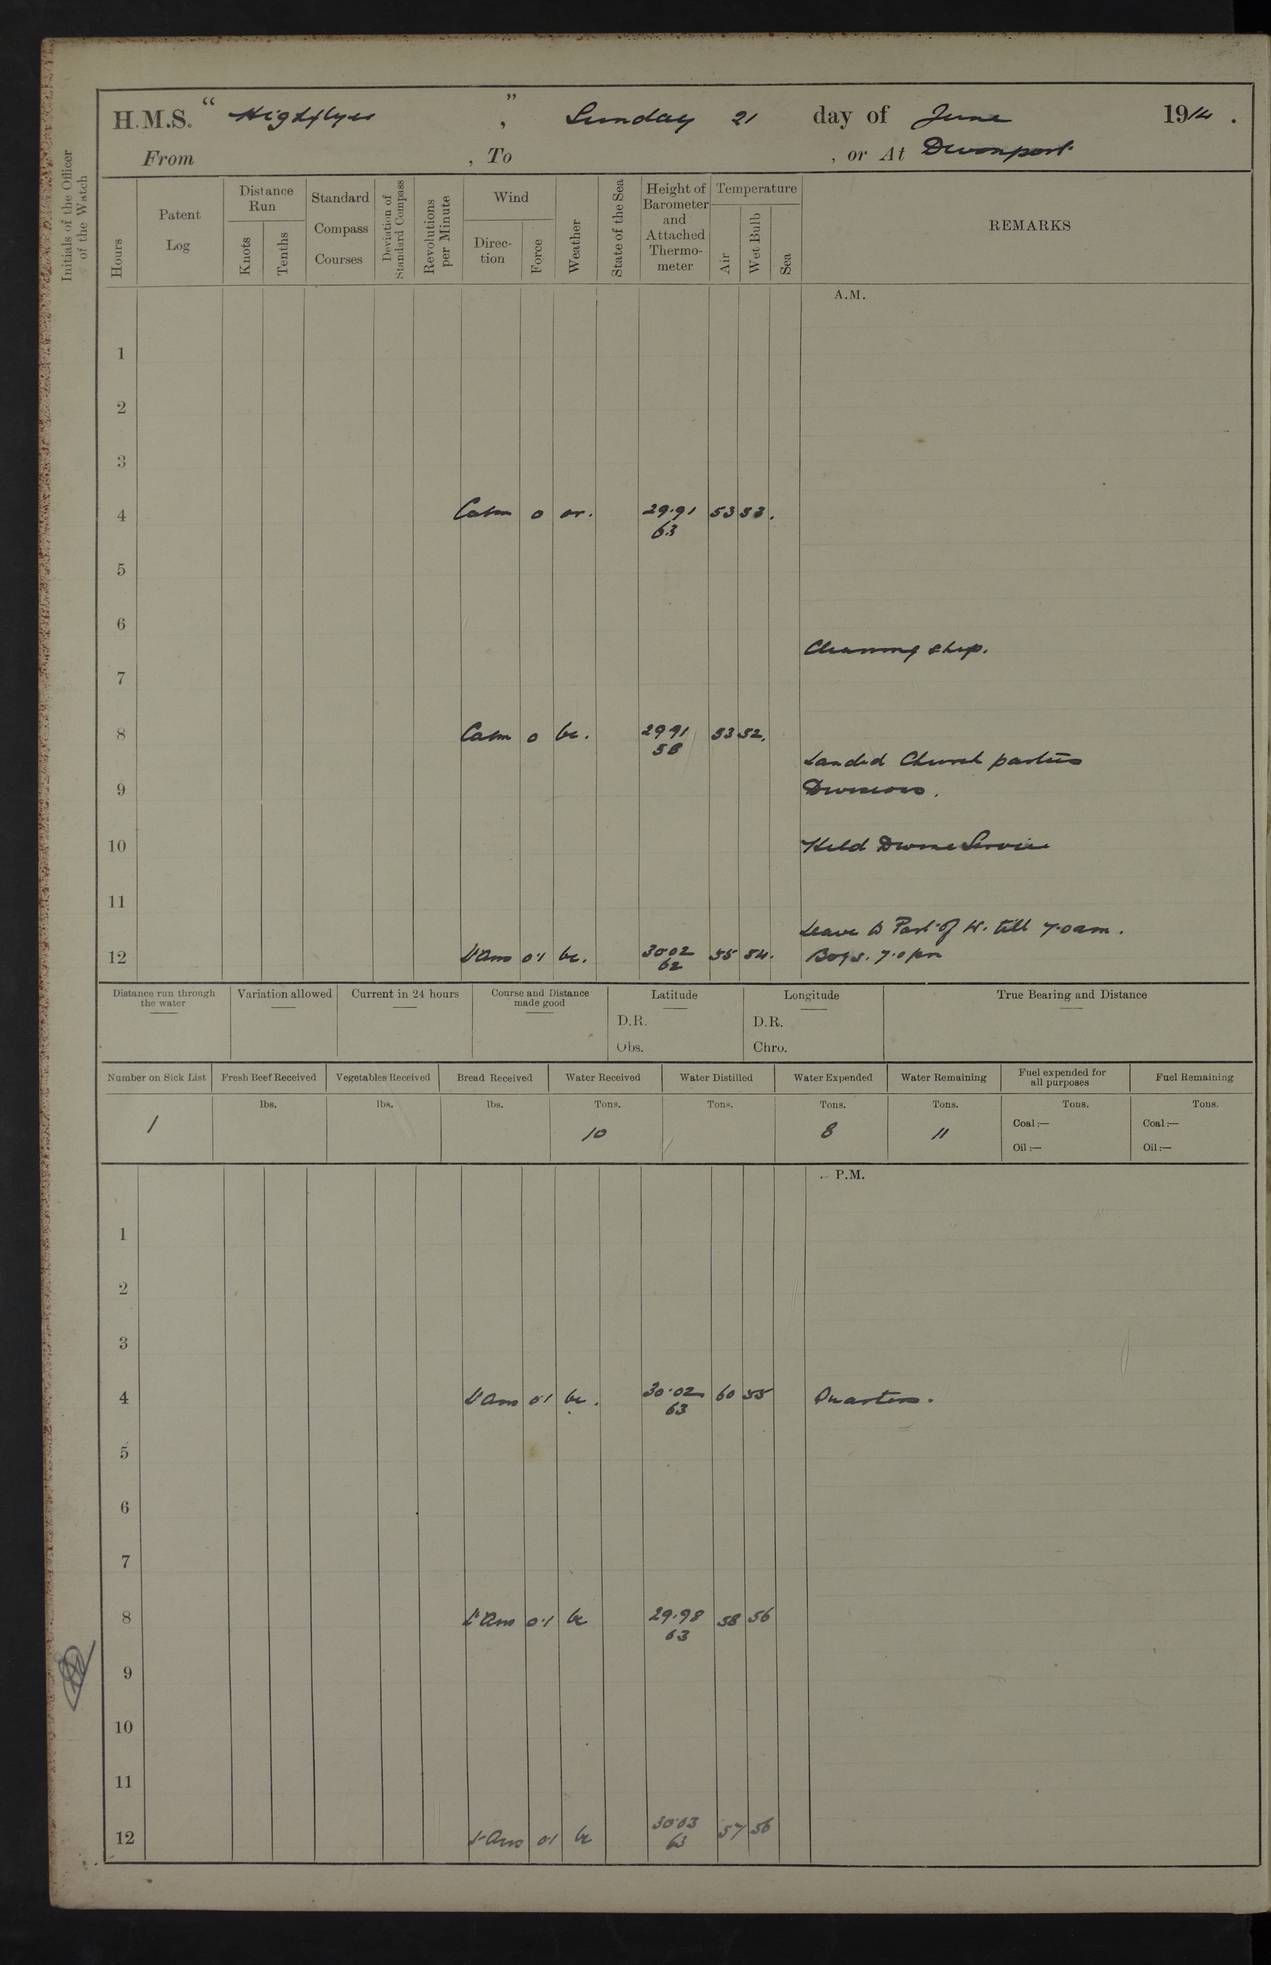 H.M.S. “ Highflyer ”, Sunday 21 day of June 1914.
From , To , or At Devonport
Initials of the Officer of the Watch
Hours
Patent Log
Distance Run
Knots
Tenths
Standard Compass Courses
Deviation of Standard Compass
Revolutions per Minute
Wind
Direction
Force
Weather
State of the Sea
Height of Barometer and Attached Thermometer
Temperature
Air
Wet Bulb
Sea
REMARKS
A.M.
1
2
3
4 Calm 0 or. 29.91 53 53.
63
5
6
Cleaning ship.
7
8 Calm 0 bc. 29 91 53 52.
58
Landed Church parties
9 Divisions.
10 Held Divine Service
11
Leave to Part of W. till 7.0 am.
12 0.1 bc. 30.02 55 54. Boys. 7.0 pm
62
Distance run through the water
Variation allowed
Current in 24 hours
Course and Distance made good
Latitude
D.R.
Obs.
Longitude
D.R.
Chro.
True Bearing and Distance
Number on Sick List
Fresh Beef Received
Vegetables Received
Bread Received
Water Received
Water Distilled
Water Expended
Water Remaining
Fuel expended for all purposes
Fuel Remaining
lbs. lbs. lbs. Tons. Tons. Tons. Tons. Tons. Tons.
1 10 8 11
Coal :— Coal :—
Oil :— Oil :—
P.M.
1
2
3
4 0.1 bc. 30.02 60 55 Quarters.
63
5
6
7
8 0.1 bc 29.98 58 56
63
9
10
11
12 0.1 bc 30.03 57 56
63